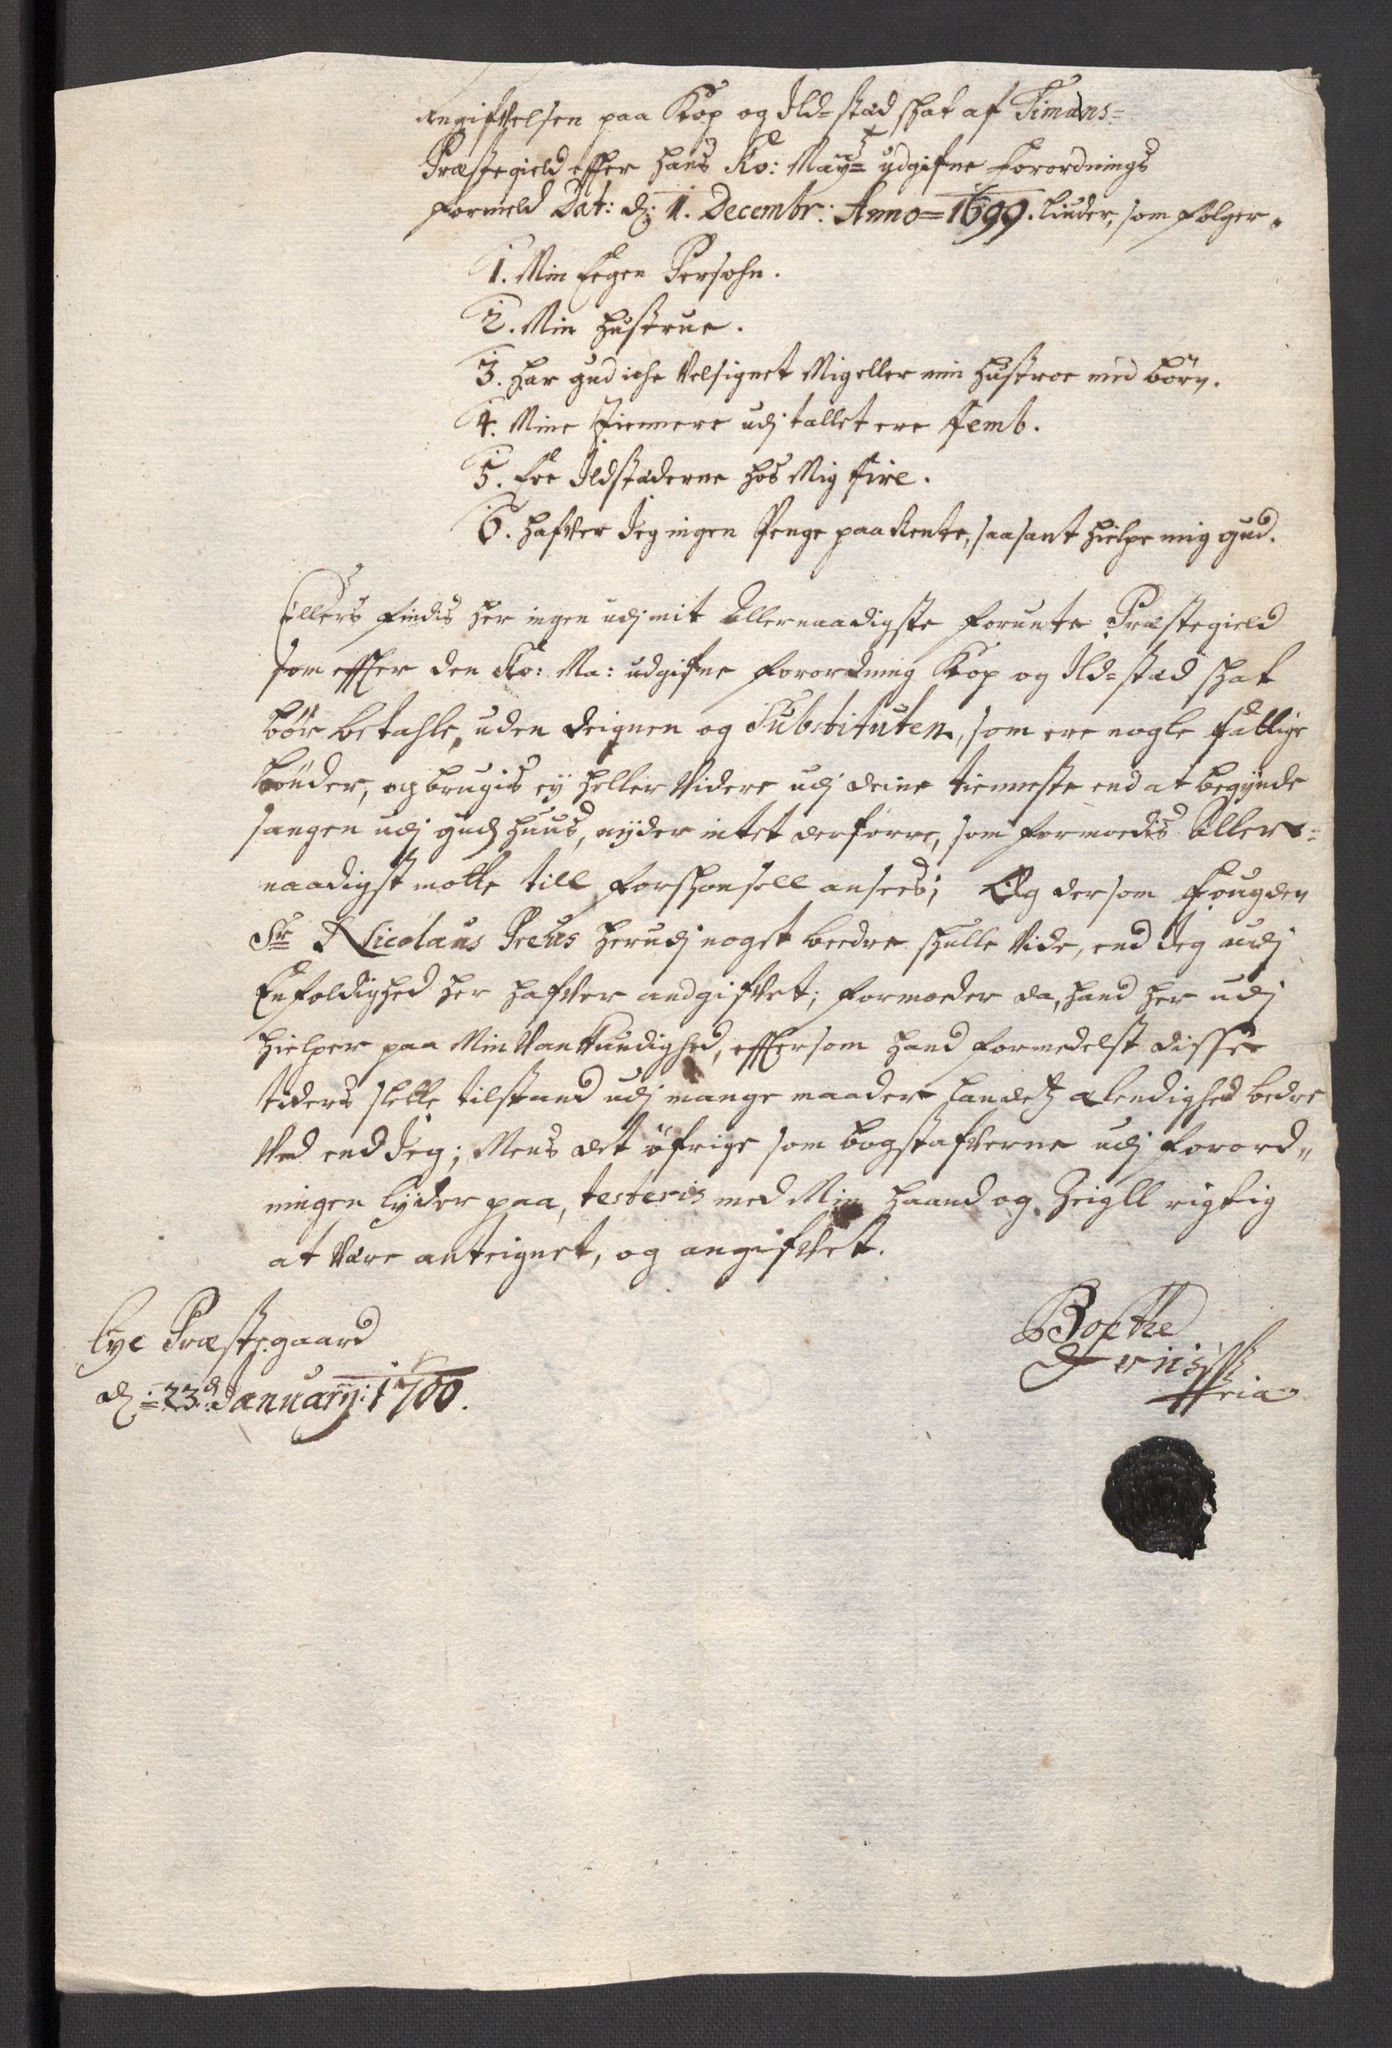 Angifvelsen paa Kop og Ild-stæd skat af Timans-
Præstegield effter hans Ko: Maytz udgifne Forordnings
formeld Dat: d: 4. Decembr: Anno=1699. liuder, som følger„
1. Min Eegen Persohn.
2. Min hustrue.
3. har gud iche Velsignet Mig eller min hustroe med børn.
4. Mine tienere udj tallet ere femb.
5. Ere Ildstæderne hos Mig fire.
6. hafver Jeg ingen Penge paa Rente, saa sant hielpe mig gud.
Ellers findis her ingen udj mit Allernaadigste forunte Præstegield
som effter den Ko: Ma: udgifne forordning Kop og Ild-stæd skat
bør betahle, uden deignen og Substituten, som ere nogle fattige
bønder, og brugis ey heller Videre udj deine tienneste end at begynde
sangen udj gudz huus, nyder intet derforre, som formoedis Aller-
naadigst motte till forskonsell ansees; Og dersom Fougden
Sr Nicolaus Preus herudj noget beedre skulle Vide, end Jeg udj
Enfoldighed her hafver andgifvet; formoeder da, hand her udj
hielper paa Min Vankundighed, effter som hand formedelst disse
tiders slette tilstand udj mange maader landetz elendighed bedre
Ved end Jeg; Mens det øfrige som bogstafverne udj forord„
ningen lyder paa, testeris med Min haand og Zeigll rigtig
at være anteignet, og angifvet.
Lye Præstegaard
d: 23d Januarij: 1700.
Boethe